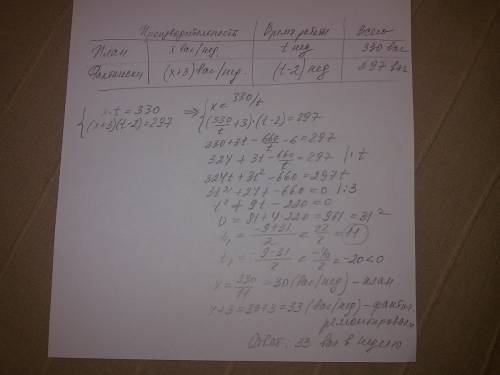 Производительность Время работы Всего
План x ваг/нед. t нед 330 ваг
Фактически (x+3) ваг/нед. (t-2) нед 297 ваг
{ x·t = 330 ⇒ { x = 330/t
(x+3)(t-2)=297 (330/t+3)·(t-2)=297
330+3t-660/t-6=297
324+3t-660/t=297 |·t
324t+3t²-660=297t
3t²+27t-660=0 |:3
t²+9t-220=0
D=81+4·220=961=31²
t₁=(-9+31)/2=22/2=11
t₁=(-9-31)/2=-40/2=-20<0
x=330/11=30 (ваг/нед) - план
x+3=30+3=33 (ваг/нед) - фактич.
ремонтировали
Ответ: 33 ваг в неделю